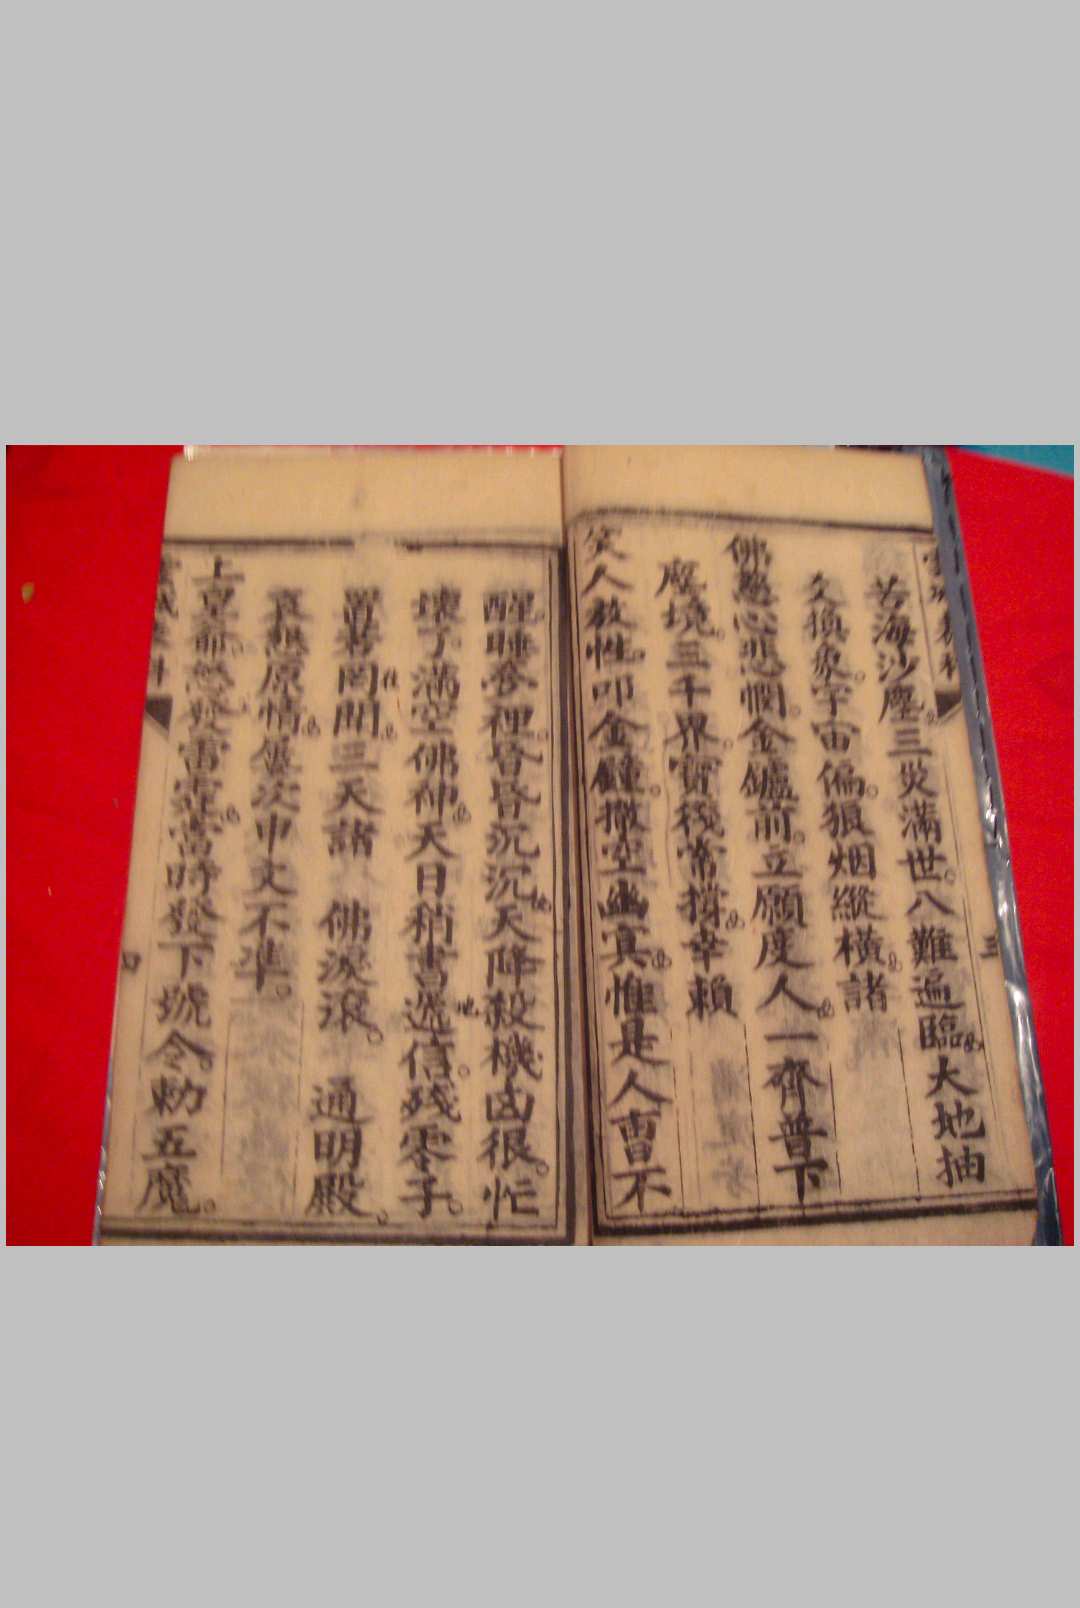 苦海沙塵三災滿世。八難遍臨大地抽
爻換象。宇宙偏。狼烟縱橫諸
佛慈心悲憫。金鑪前。立願度人一齊普下
塵境。三千界。寶筏常撐幸賴
人教性叩金鐘。撒空幽冥惟是人曹不
醒睡夢裡。昏昏沉沉天降殺機凶很。忙
壞了滿空佛神天日稍書遞信。殘零子。
置若罔聞三天諸 佛淚滾。 通明殿
哀懇原情屢次申文不準。
上皇 發雷霆當時發下號令。勅五魔。
三
四